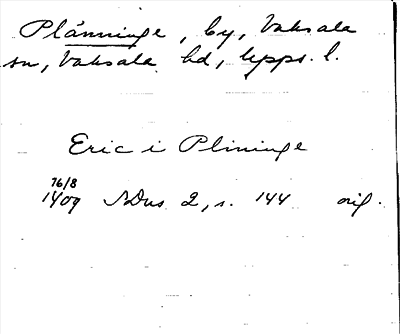 Plänninge, by, Vaksala
sn, Vaksala hd, Upps. l.
Eric i Plininge
16/8
1409 SDns 2, s. 144 orig.